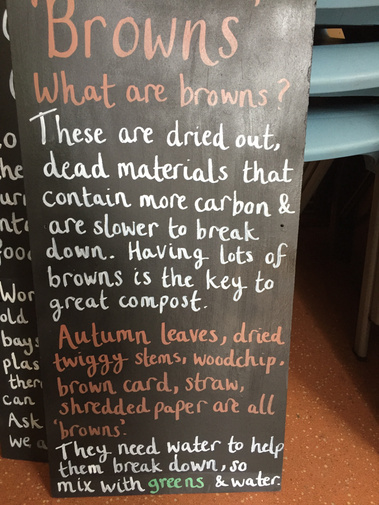 'Browns'
What are browns?
These are dried out,
dead materials that
contain more carbon &
are slower to break
down. Having lots of
browns is the key to
great compost.
Autumn leaves, dried
twiggy stems, woodchip,
brown card, straw,
shredded paper are all
'browns'.
They need water to help
them break down, so
mix with greens & water.
old
bags
can
Ask
we